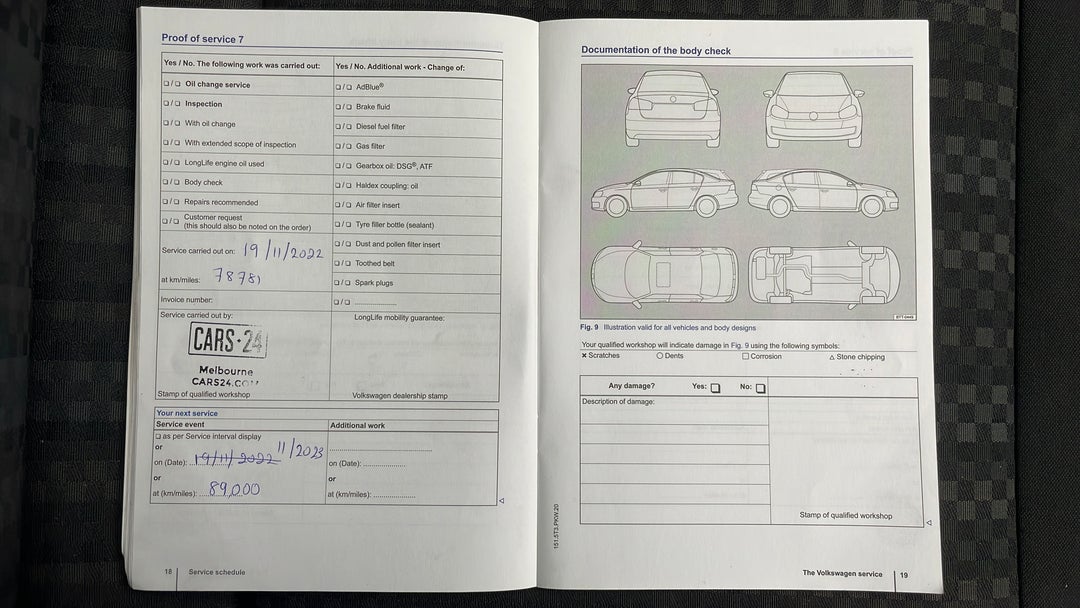 Proof of service 7
Yes / No. The following work was carried out:
❑ / ❑ Oil change service
❑ / ❑ Inspection
❑ / ❑ With oil change
❑ / ❑ With extended scope of inspection
❑ / ❑ LongLife engine oil used
❑ / ❑ Body check
❑ / ❑ Repairs recommended
❑ / ❑ Customer request
(this should also be noted on the order)
Service carried out on: 19/11/2022
at km/miles: 78781
Invoice number:
Service carried out by:
CARS·24
Melbourne
CARS24.CO
Stamp of qualified workshop
Yes / No. Additional work - Change of:
❑ / ❑ AdBlue®
❑ / ❑ Brake fluid
❑ / ❑ Diesel fuel filter
❑ / ❑ Gas filter
❑ / ❑ Gearbox oil: DSG®, ATF
❑ / ❑ Haldex coupling: oil
❑ / ❑ Air filter insert
❑ / ❑ Tyre filler bottle (sealant)
❑ / ❑ Dust and pollen filter insert
❑ / ❑ Toothed belt
❑ / ❑ Spark plugs
❑ / ❑ ....................
LongLife mobility guarantee:
Volkswagen dealership stamp
Your next service
Service event
❑ as per Service interval display
or
on (Date): 19/11/2022 11/2023
or
at (km/miles): 89,000
Additional work
on (Date): ....................
or
at (km/miles): ....................
18 Service schedule
Documentation of the body check
BTT-0449
Fig. 9 Illustration valid for all vehicles and body designs
Your qualified workshop will indicate damage in Fig. 9 using the following symbols:
× Scratches ○ Dents □ Corrosion △ Stone chipping
Any damage? Yes: ❑ No: ❑
Description of damage:
Stamp of qualified workshop
151.5T3.PKW.20
The Volkswagen service 19